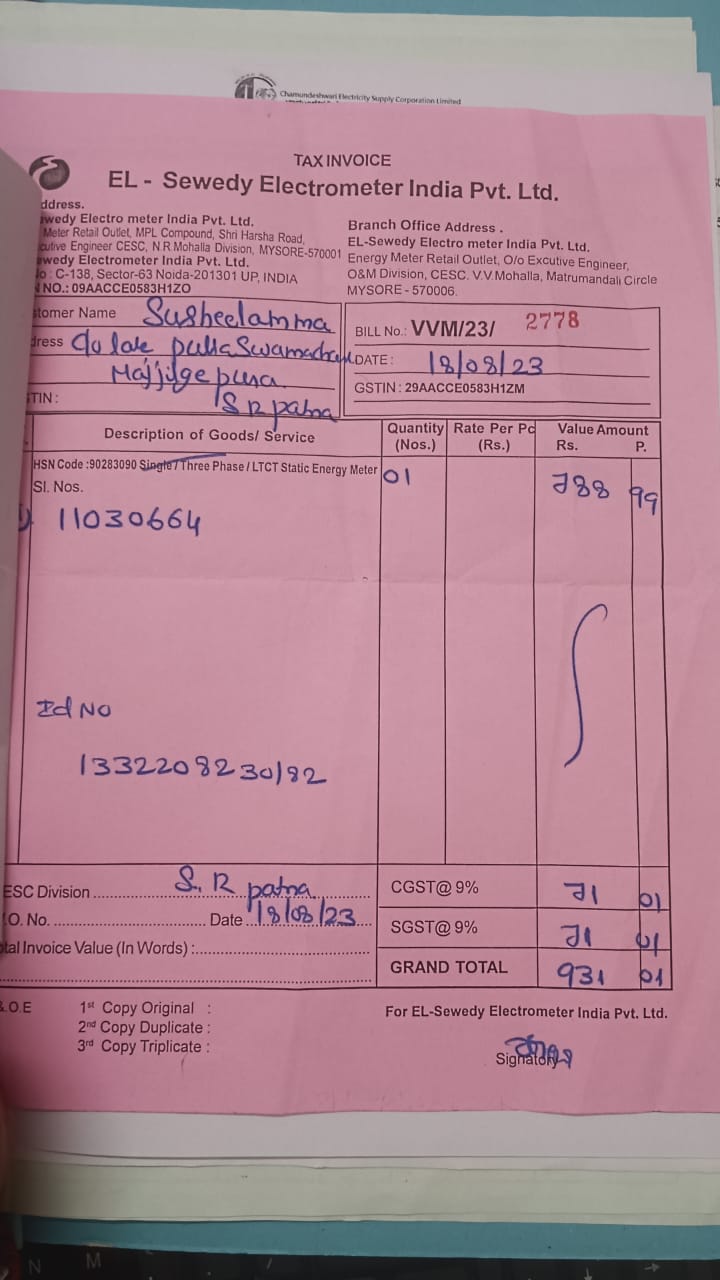 Chamundeshwari Electricity Supply Corporation Limited
TAX INVOICE
EL - Sewedy Electrometer India Pvt. Ltd.
ddress.
wedy Electro meter India Pvt. Ltd.
Meter Retail Outlet, MPL Compound, Shri Harsha Road,
cutive Engineer CESC, N.R Mohalla Division, MYSORE-570001
ewedy Electro meter India Pvt. Ltd.
o : C-138, Sector-63 Noida-201301 UP, INDIA
NO.: 09AACCE0583H1ZO
Branch Office Address .
EL-Sewedy Electro meter India Pvt. Ltd.
Energy Meter Retail Outlet, O/o Excutive Engineer,
O&M Division, CESC. V.V Mohalla, Matrumandali Circle
MYSORE - 570006.
stomer Name Susheelamma
dress c/o late
Majjigepura
TIN : S R patna
BILL No.: VVM/23/ 2778
DATE : 18/08/23
GSTIN : 29AACCE0583H1ZM
Description of Goods/ Service Quantity (Nos.) Rate Per Pc (Rs.) Value Amount Rs. P.
HSN Code :90283090 Single / Three Phase / LTCT Static Energy Meter 01 788 99
Sl. Nos.
1) 11030664
Id No
1332208230182
ESC Division S. R patna CGST@ 9% 71 01
.O. No. Date 18/08/23 SGST@ 9% 71 01
tal Invoice Value (In Words) :
GRAND TOTAL 931 01
&.O.E 1st Copy Original :
2nd Copy Duplicate :
3rd Copy Triplicate :
For EL-Sewedy Electrometer India Pvt. Ltd.
Signatory
N M